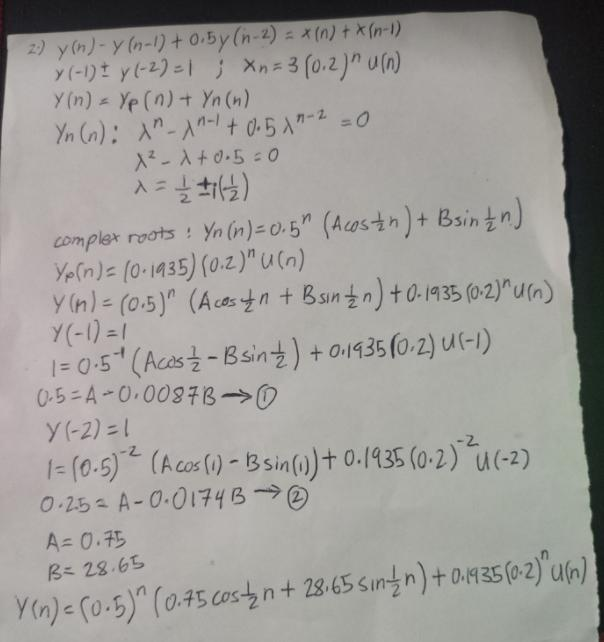 2.) y(n) - y(n-1) + 0.5y(n-2) = x(n) + x(n-1)
y(-1) = y(-2) = 1 ; Xn = 3(0.2)ⁿ u(n)
Y(n) = Yp(n) + Yn(n)
Yn(n): λⁿ - λⁿ⁻¹ + 0.5 λⁿ⁻² = 0
λ² - λ + 0.5 = 0
λ = 1/2 ± i(1/2)
complex roots : Yn(n) = 0.5ⁿ (Acos 1/2 n) + Bsin 1/2 n)
Yp(n) = (0.1935)(0.2)ⁿ U(n)
Y(n) = (0.5)ⁿ (Acos 1/2 n + Bsin 1/2 n) + 0.1935(0.2)ⁿ U(n)
Y(-1) = 1
1 = 0.5⁻¹ (Acos 1/2 - Bsin 1/2) + 0.1935(0.2) U(-1)
0.5 = A - 0.0087B → ①
Y(-2) = 1
1 = (0.5)⁻² (Acos(1) - Bsin(1)) + 0.1935(0.2)⁻² U(-2)
0.25 = A - 0.0174B → ②
A = 0.75
B = 28.65
Y(n) = (0.5)ⁿ (0.75 cos 1/2 n + 28.65 sin 1/2 n) + 0.1935(0.2)ⁿ U(n)